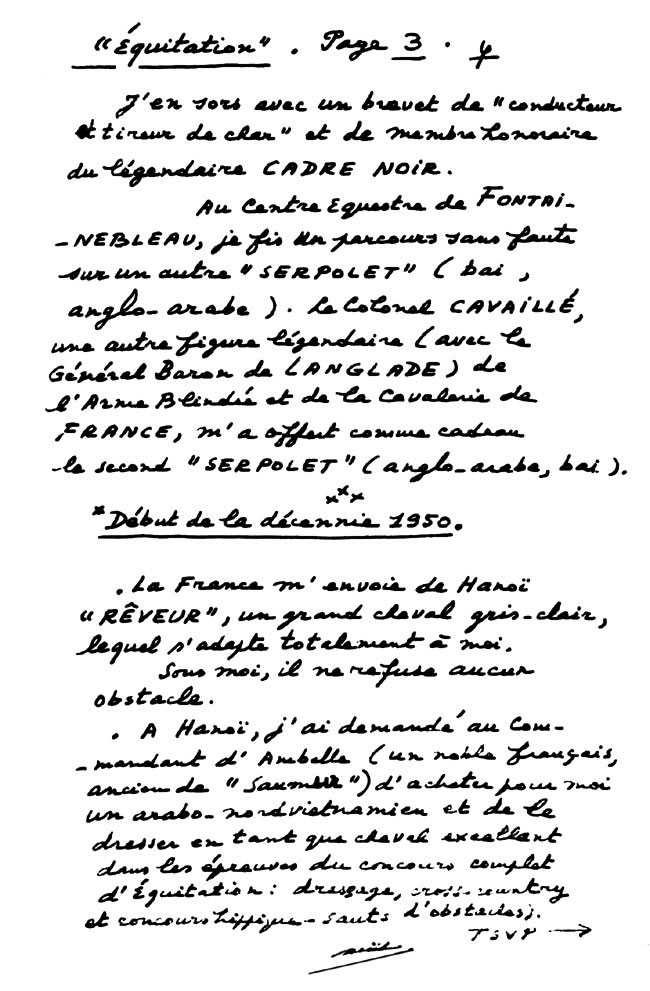 "Équitation". Page 3.
J'en sors avec un brevet de "conducteur
et tireur de char" et de membre honoraire
du légendaire CADRE NOIR.
Au Centre Equestre de FONTAI-
-NEBLEAU, je fis un parcours sans faute
sur un autre "SERPOLET" (bai,
anglo-arabe). Le Colonel CAVAILLÉ,
une autre figure légendaire (avec le
Général Baron de LANGLADE) de
l'Arme Blindée et de la Cavalerie de
FRANCE, m'a offert comme cadeau
le second "SERPOLET" (anglo-arabe, bai).
xxx
*Début de la décennie 1950.
. La France m'envoie de Hanoï
"RÊVEUR", un grand cheval gris-clair,
lequel s'adapte totalement à moi.
Sous moi, il ne refuse aucun
obstacle.
. A Hanoï, j'ai demandé au Com-
-mandant d'Ambelle (un noble français,
ancien de "Saumur") d'acheter pour moi
un arabo-nordvietnamien et de le
dresser en tant que cheval excellent
dans les épreuves du concours complet
d'Équitation: dressage, cross-country
et concours hippique-sauts d'obstacles;.
TSVP →